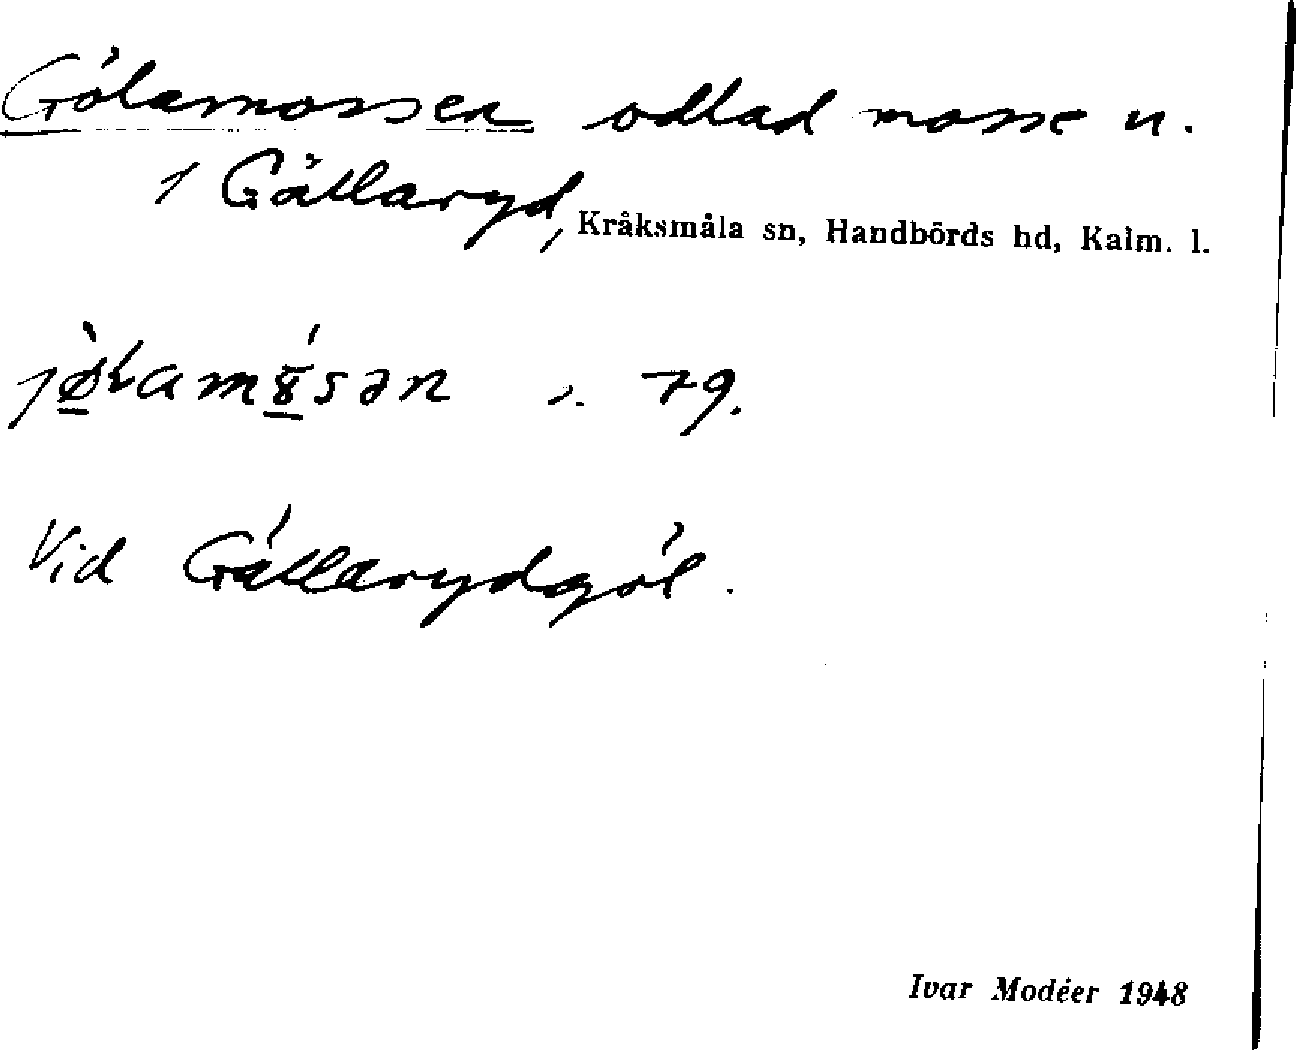 Gölamossen odlad mosse u.
1 Gällaryd, Kråksmåla sn, Handbörds hd, Kalm. l.
79.
Vid Gällarydgöl.
Ivar Modéer 1948